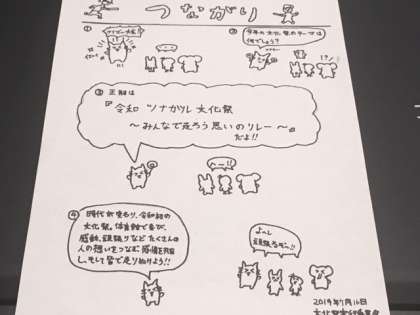 つながり
①
クイズ大会
②
今年の文化祭のテーマは
何でしょう？
!?
③ 正解は
『令和 ツナガル文化祭
〜みんなで走ろう思いのリレー〜』
だよ!!
へー!!
④
時代が変わり、令和初の
文化祭。体育館で喜び、
感動、頑張りなどたくさんの
人の想いをつなぐ
そして皆で走り抜けよう!!
よーし
頑張るぞー!!
2019年7月16日